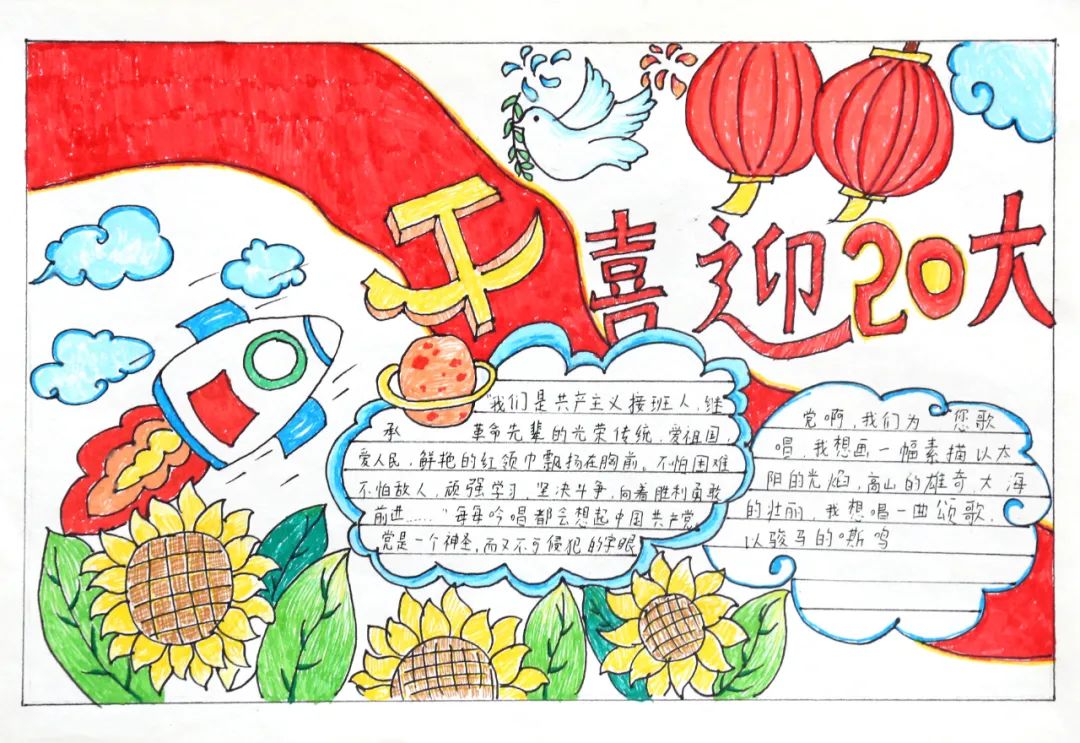 喜迎20大
"我们是共产主义接班人，继
承 革命先辈的光荣传统，爱祖国，
爱人民，鲜艳的红领巾飘扬在胸前。不怕困难
不怕敌人，顽强学习，坚决斗争，向着胜利勇敢
前进……"每每吟唱都会想起中国共产党，
党是一个神圣，而又不可侵犯的字眼
党啊，我们为 您歌
唱，我想画一幅素描以太
阳的光焰，高山的雄奇大海
的壮丽，我想唱一曲颂歌，
以骏马的嘶鸣